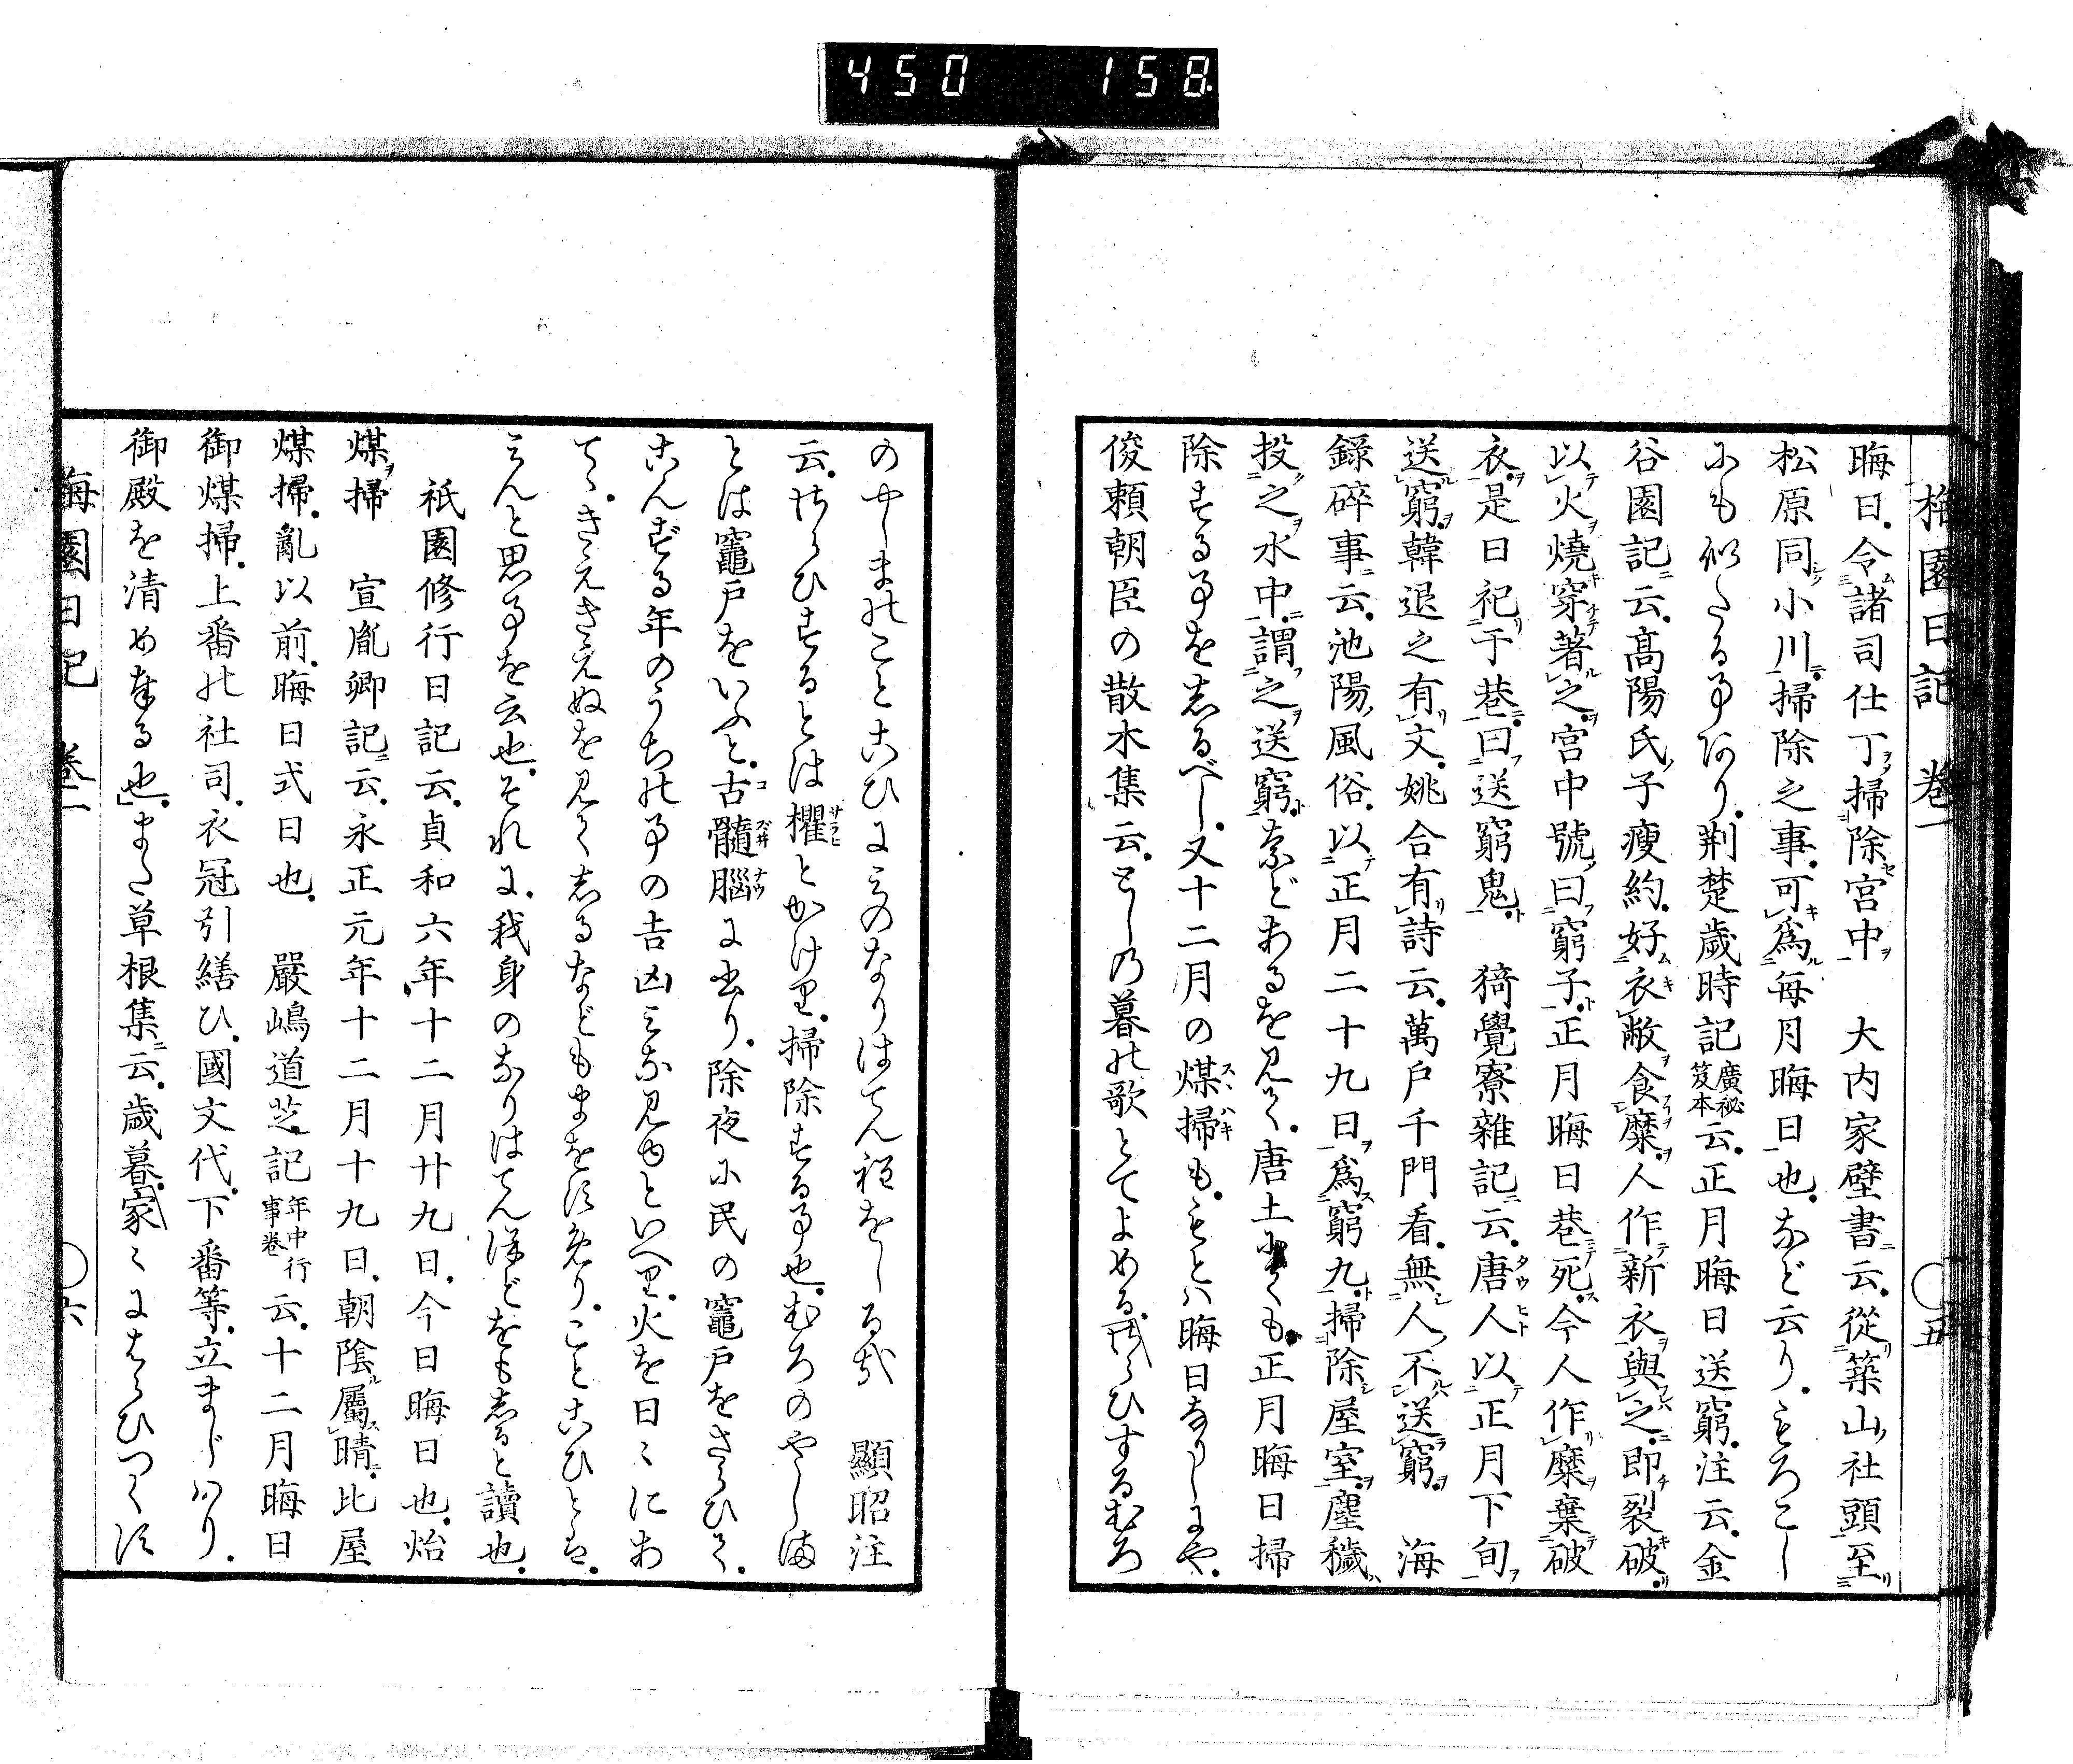 450 158
梅園日記 卷一 ○五
晦日。令諸司仕丁掃除宮中 大内家壁書云。從築山社頭至
松原同小川掃除之事。可爲毎月晦日也。など云り。もろこし
にも似たる事あり。荆楚歳時記廣祕笈本云。正月晦日送窮。注云。金
谷園記云。高陽氏子瘦約。好衣敝食糜。人作新衣與之。即裂破
以火燒穿著之。宮中號曰窮子。正月晦日巷死。今人作糜棄破
衣。是日祀于巷。曰送窮鬼 猗覺寮雜記云。唐人以正月下旬
送窮。韓退之有文。姚合有詩云。萬戸千門看。無人不送窮。 海
錄碎事云。池陽風俗。以正月二十九日爲窮九。掃除屋室塵穢
投之水中。謂之送窮。などあるを見て。唐土にても。正月晦日掃
除する事をしるべし。又十二月の煤掃も。もとハ晦日なりしにや。
俊頼朝臣の散木集云。としの暮の歌とてよめる。さらひするむろ
のやしまのことこひにみのなりはてん程をしる哉 顯昭注
云。さらひするとは欋とかけり。掃除する事也。むろのやしま
とは竈戸をいふと。古髓腦に出り。除夜に民の竈戸をさらひて。
こんずる年のうちの事の吉凶みな見ゆといへり。火を日ゝにあ
てゝ。きえきえぬを見てしるなどもまをすめり。ことこひとは。
みんと思事を云也。それに。我身のなりはてん程どをもしると讀也。
祇園修行日記云。貞和六年十二月廿九日。今日晦日也。始
煤掃 宣胤卿記云。永正元年十二月十九日。朝陰屬晴。比屋
煤掃。亂以前。晦日式日也。 嚴嶋道芝記年中行事卷云。十二月晦日
御煤掃。上番の社司。衣冠引繕ひ。國文代。下番等。立まじハり。
御殿を清め奉る也。また草根集云。歳暮。家ゝにはらひつくす
梅園日記 卷一 ○六